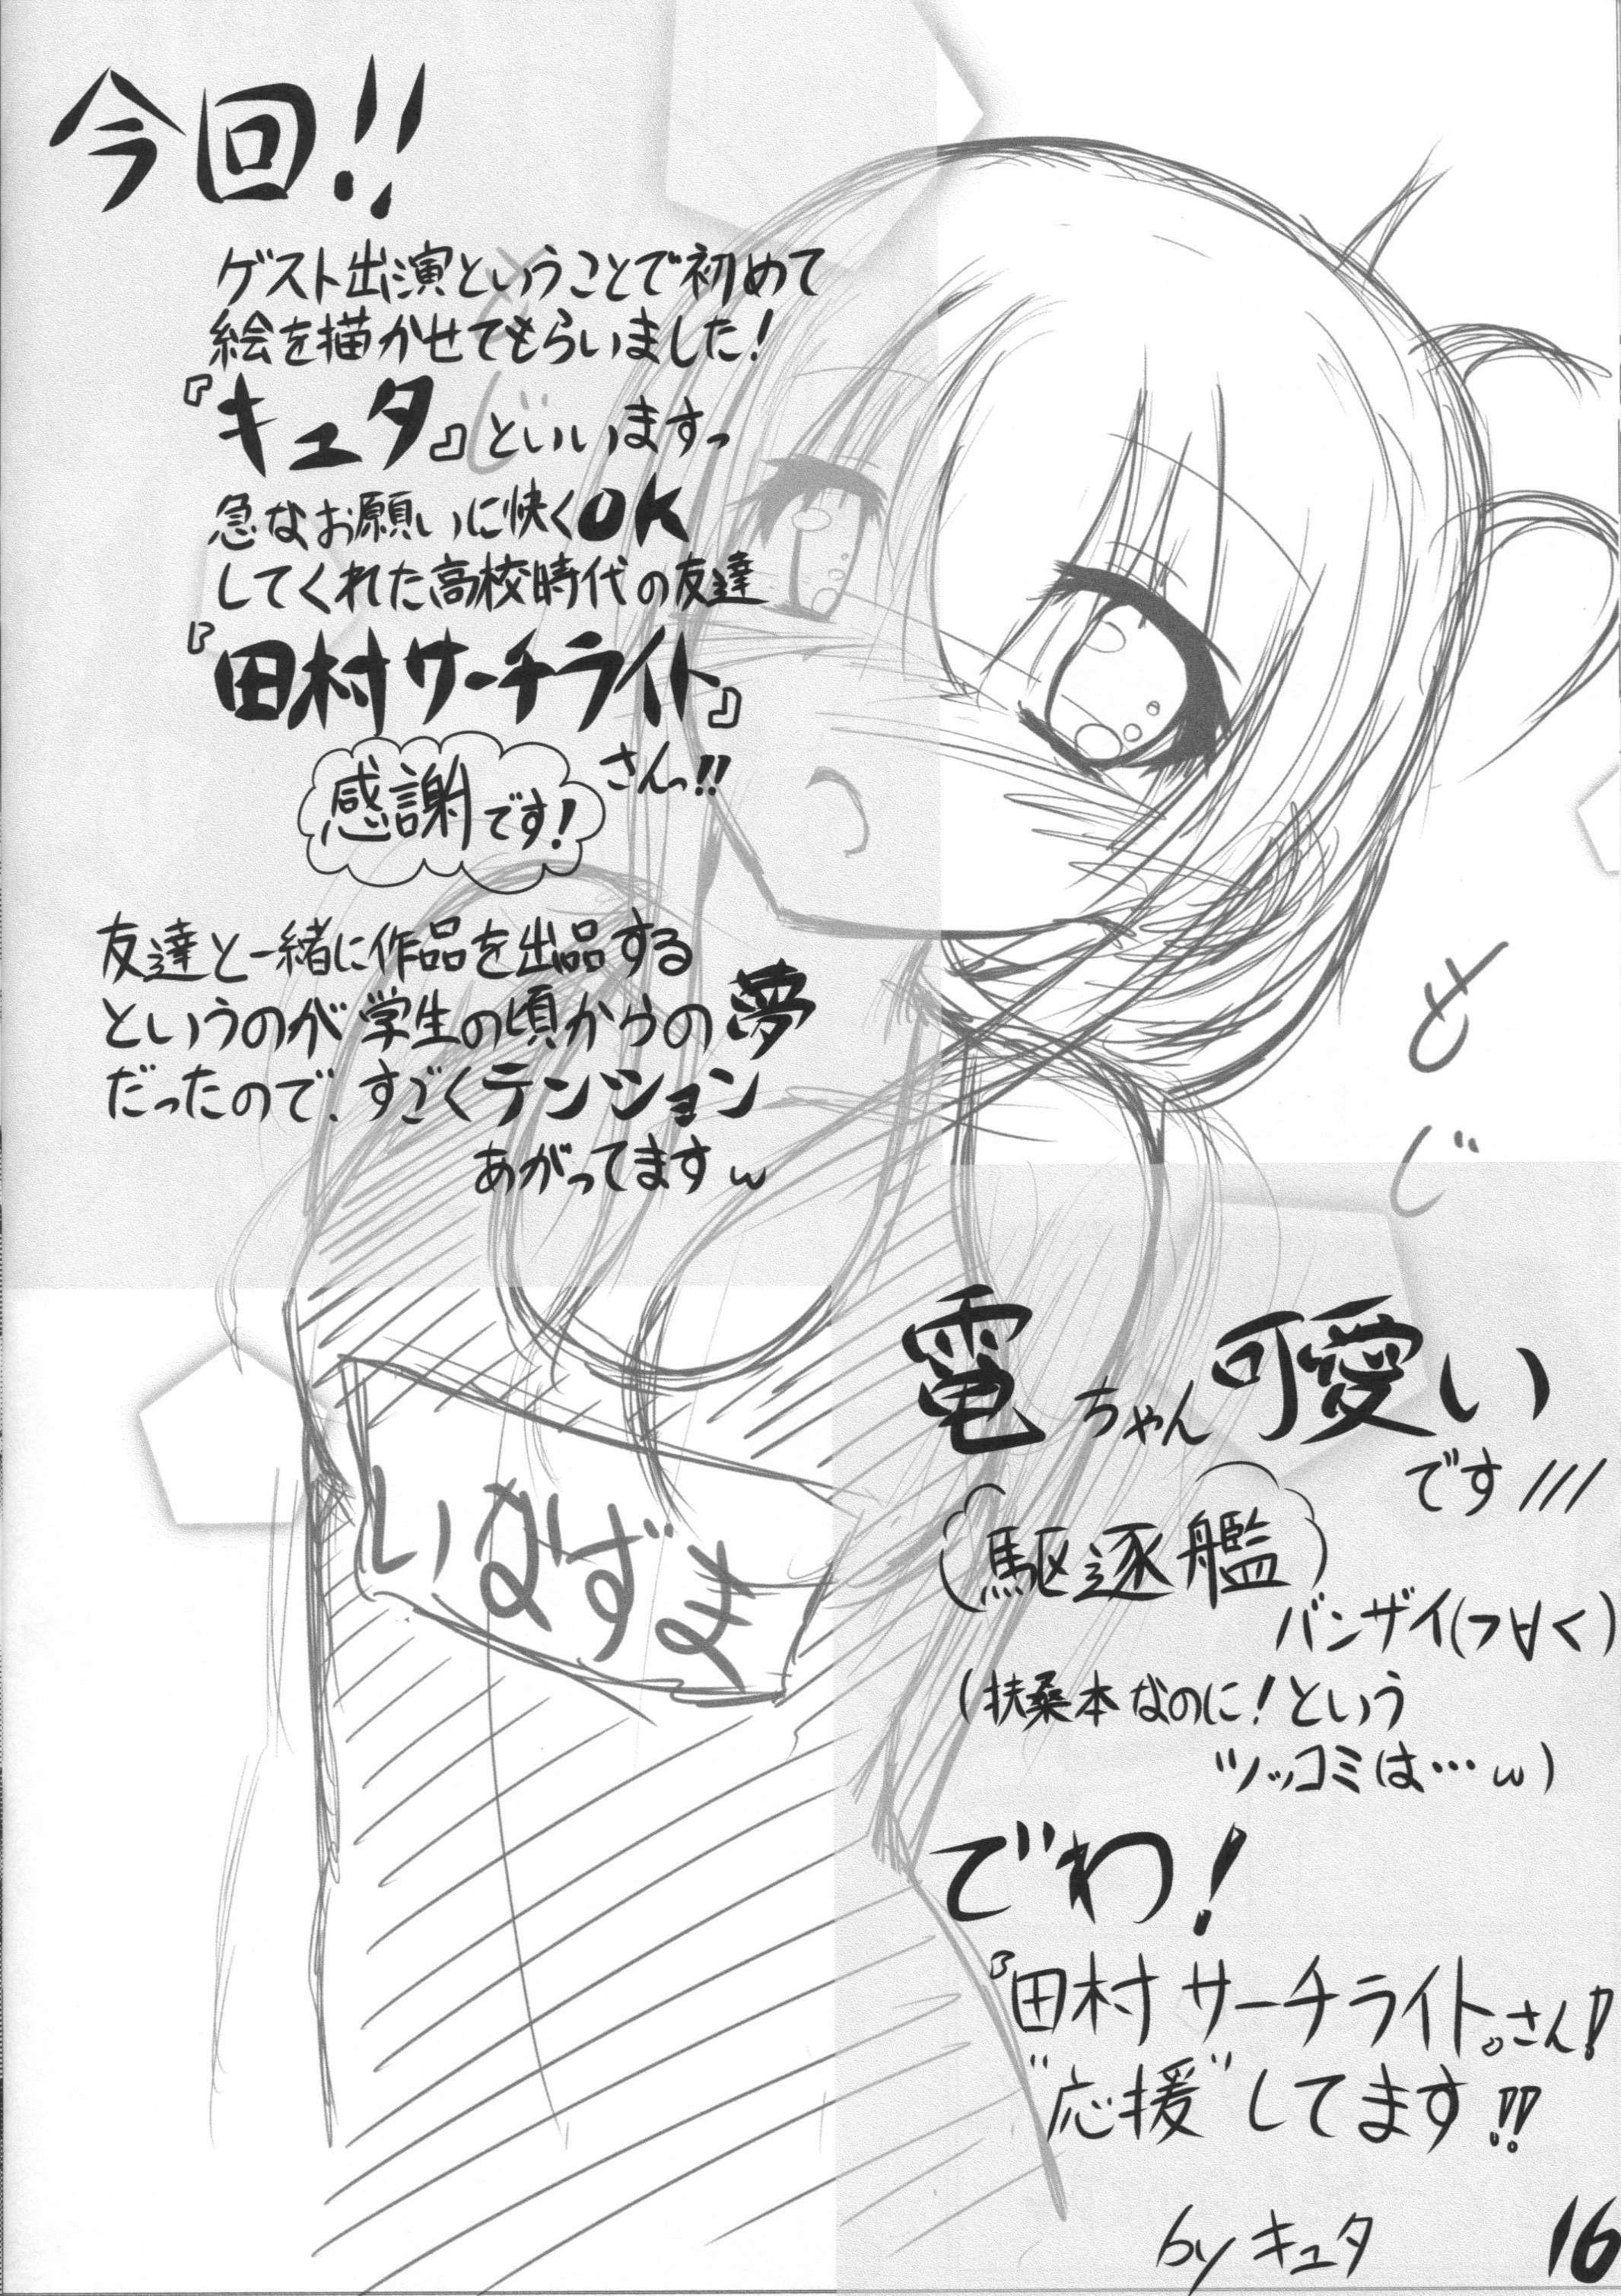 今回!!
ゲスト出演ということで初めて
絵を描かせてもらいました!
『キュタ』といいますっ
急なお願いに快くOK
してくれた高校時代の友達
『田村サーチライト』
さんっ!!
感謝です!
友達と一緒に作品を出品する
というのが学生の頃からの夢
だったので、すごくテンション
あがってますw
もじ
もじ
いなずま
電ちゃん可愛い
です///
(駆逐艦)
バンザイ(>∀<)
(扶桑本なのに!という
ツッコミは…w)
でわ!
『田村サーチライト』さん!
"応援"してます!!
by キュタ
16